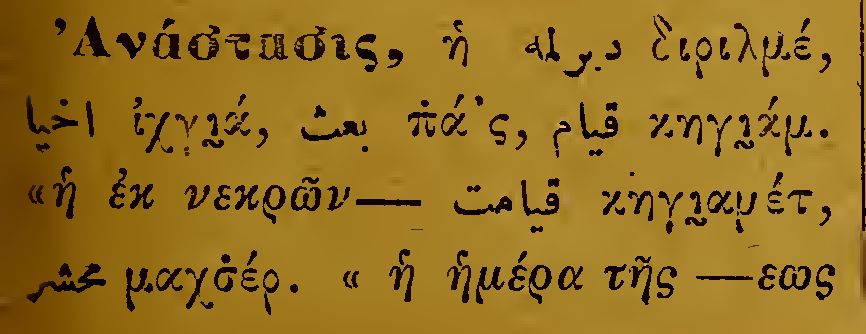 Ἀνάστασις, ἡ ديرلمه διριλμέ,
احيا ἰχγι̰ά, بعث π̇ά'ς, قيام κηγι̰άμ.
«ἡ ἐκ νεκρῶν— قيامت κηγι̰αμέτ,
محشر μαχσ̇έρ. « ἡ ἡμέρα τῆς —εως